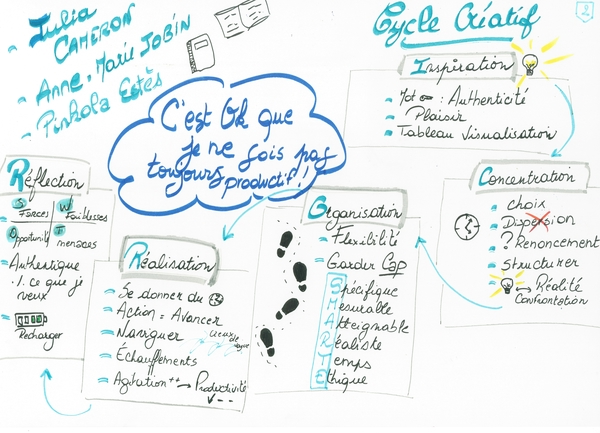 Julia
CAMERON
Anne-Marie JOBIN
Pinkola Estès
Cycle Créatif
2
Inspiration
Mot : Authenticité
Plaisir
Tableau Visualisation
C'est Ok que
je ne sois pas
toujours productif !
Concentration
choix
Dispersion
? Renoncement
structurer
Réalité
Confrontation
Organisation
Flexibilité
Garder Cap
Spécifique
Mesurable
Atteignable
Réaliste
Temps
Ethique
Réalisation
Se donner du
Action = Avancer
Naviguer
creux de vague
Échauffements
Agitation ++ → Productivité
✓ --
Réflection
S W
Forces Faiblesses
Opportunité T
menaces
Authentique
./. ce que je
veux
Recharger